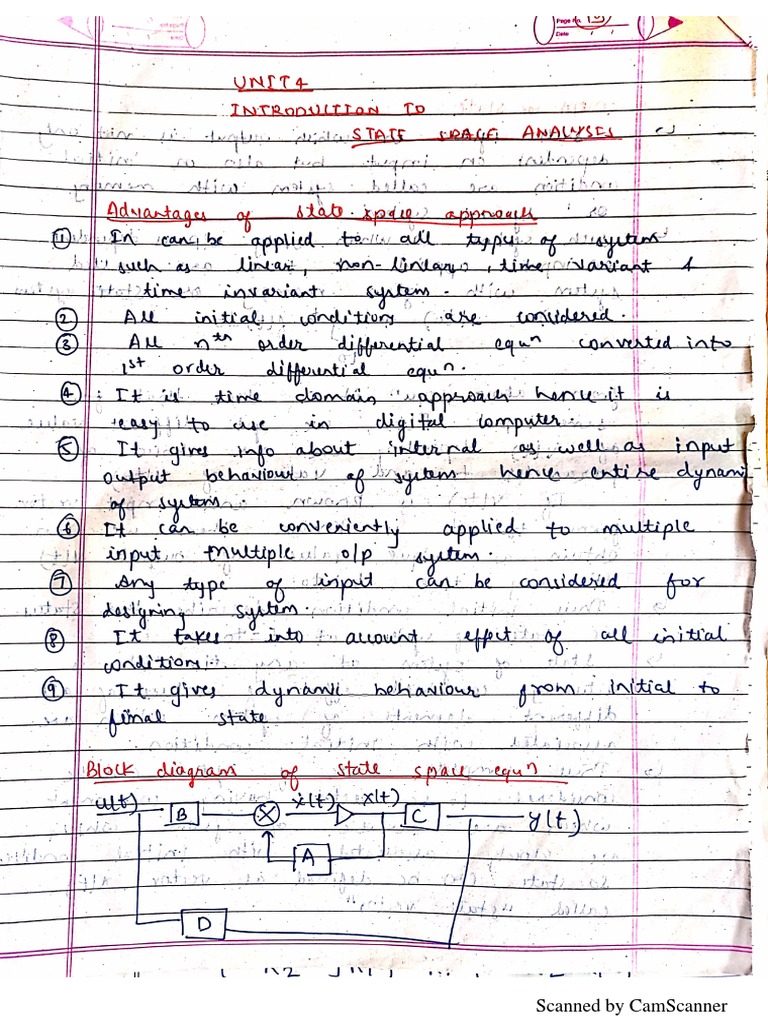 Page No. 19
Date
UNIT 4
INTRODUCTION TO
STATE SPACE ANALYSES
Advantages of state space approach
① In can be applied to all type of system
such as linear, non-linear, time variant &
time invariant system.
② All initial conditions are considered.
③ All nth order differential equn converted into
1st order differential equn.
④ : It is time domain approach hence it is
easy to use in digital computer.
⑤ It gives info about internal as well as input
output behaviour of system hence entire dynami
of system
⑥ It can be conveniently applied to multiple
input multiple o/p system.
⑦ Any type of input can be considered for
designing system.
⑧ It takes into account effect of all initial
condition.
⑨ It gives dynamic behaviour from initial to
final state
Block diagram of state space equn
u(t) B ẋ(t) x(t) C y(t)
A
D
Scanned by CamScanner